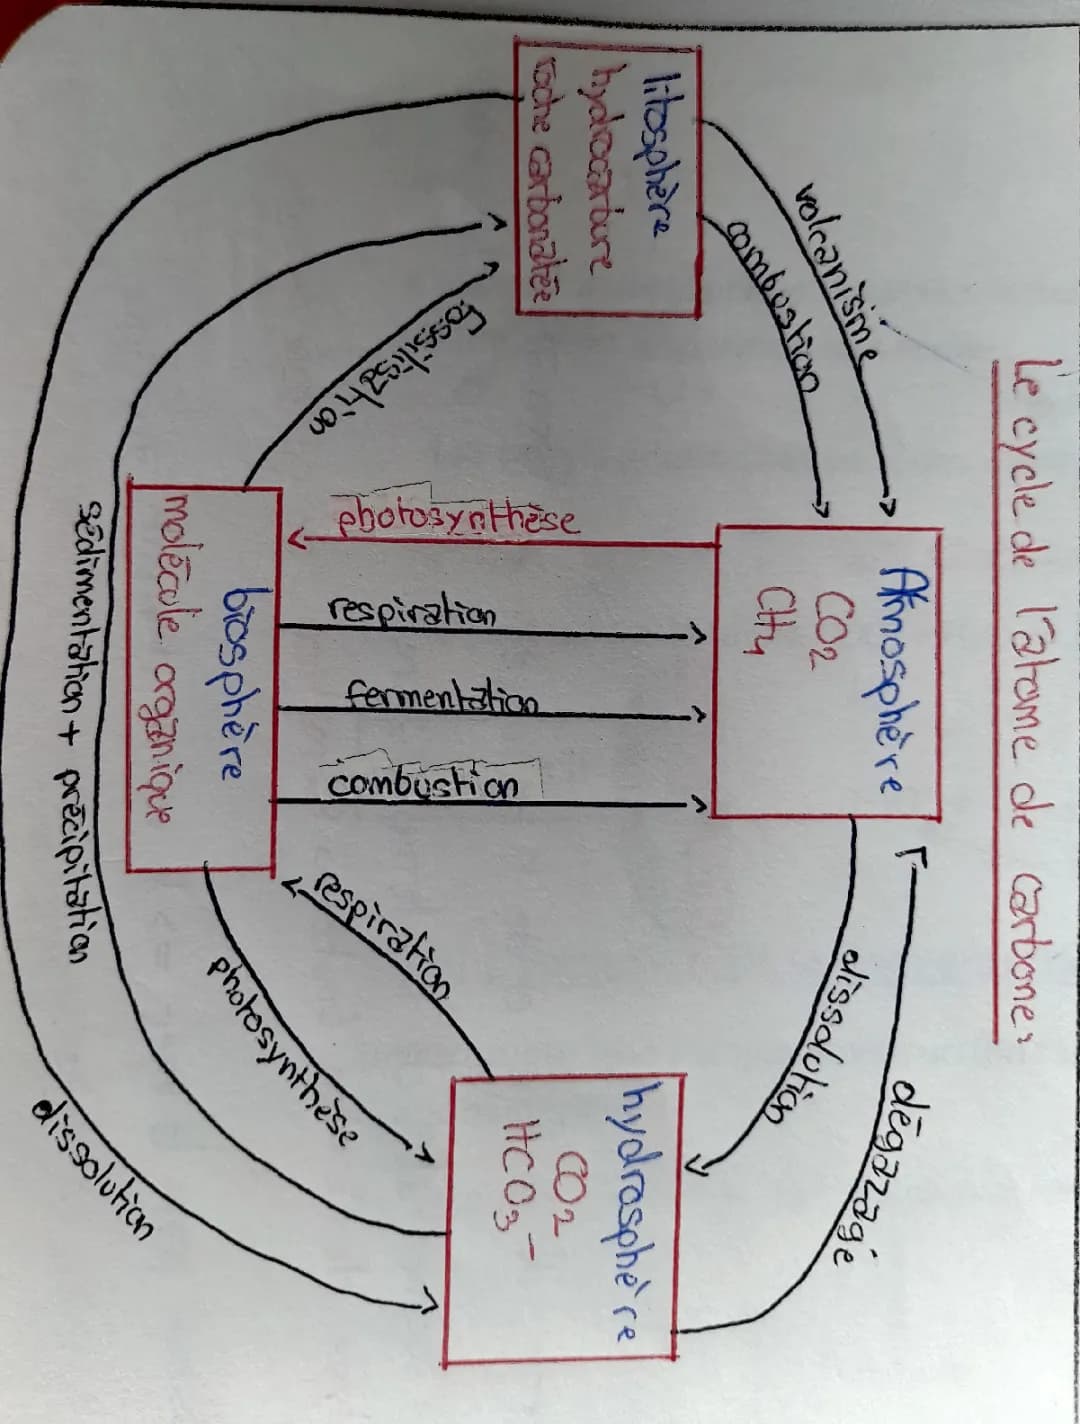 Le cycle de l'atome de carbone:
volcanisme
combostion
litosphère
hydrocarbure
roche carbonatée
fossilisation
Atmosphère
CO2
CH4
photosynthèse
respiration
fermentation
combustion
biosphère
molécule organique
dissolution
dégazage
respiration
photosynthèse
hydrosphère
CO2
HCO3-
sédimentation + précipitation
dissolution